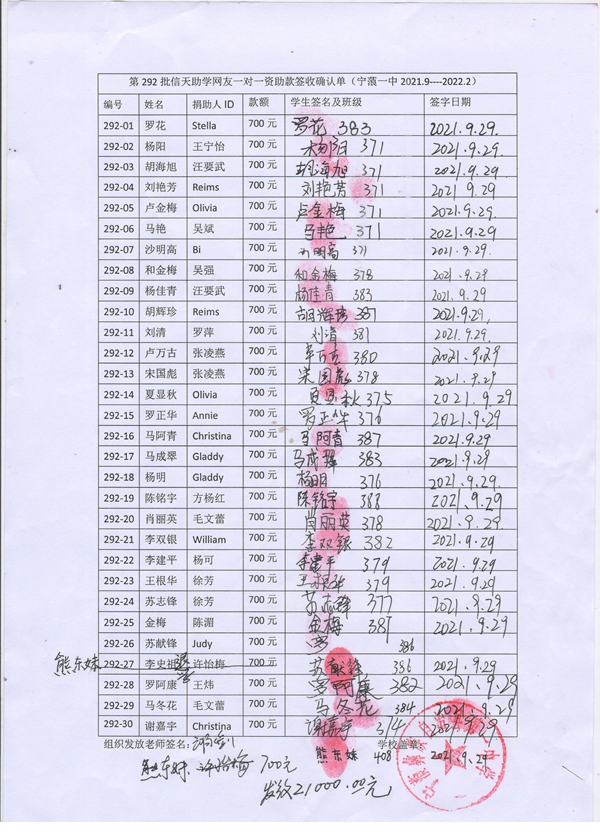 第 292 批信天助学网友一对一资助款签收确认单（宁蒗一中 2021.9----2022.2）
编号 姓名 捐助人 ID 款额 学生签名及班级 签字日期
292-01 罗花 Stella 700 元 罗花 383 2021.9.29.
292-02 杨阳 王宁怡 700 元 杨阳 371 2021.9.29.
292-03 胡海旭 汪要武 700 元 胡海旭 371 2021.9.29.
292-04 刘艳芳 Reims 700 元 刘艳芳 371 2021.9.29
292-05 卢金梅 Olivia 700 元 卢金梅 371 2021.9.29.
292-06 马艳 吴斌 700 元 马艳 371 2021.9.29.
292-07 沙明高 Bi 700 元 沙明高 371 2021.9.29.
292-08 和金梅 吴强 700 元 和金梅 378 2021.9.29
292-09 杨佳青 汪要武 700 元 杨佳青 383 2021.9.29
292-10 胡辉珍 Reims 700 元 胡辉珍 387 2021.9.29.
292-11 刘清 罗萍 700 元 刘清 381 2021.9.29.
292-12 卢万古 张凌燕 700 元 卢万古 380 2021.9.29
292-13 宋国彪 张凌燕 700 元 宋国彪 378 2021.9.29
292-14 夏显秋 Olivia 700 元 夏显秋 375 2021.9.29
292-15 罗正华 Annie 700 元 罗正华 376 2021.9.29.
292-16 马阿青 Christina 700 元 马阿青 387 2021.9.29
292-17 马成翠 Gladdy 700 元 马成翠 383 2021.9.29.
292-18 杨明 Gladdy 700 元 杨明 376 2021.9.29.
292-19 陈铭宇 方杨红 700 元 陈铭宇 388 2021.9.29
292-20 肖丽英 毛文蕾 700 元 肖丽英 378 2021.9.29.
292-21 李双银 William 700 元 李双银 382 2021.9.29
292-22 李建平 杨可 700 元 李建平 379 2021.9.29.
292-23 王根华 徐芳 700 元 王根华 379 2021.9.29.
292-24 苏志锋 徐芳 700 元 苏志锋 377 2021.9.29.
292-25 金梅 陈湄 700 元 金梅 381 2021.9.29.
292-26 苏献锋 Judy 700 元 386
熊东妹 292-27 李史祖 许怡梅 700 元 苏献锋 386 2021.9.29
292-28 罗阿康 王炜 700 元 罗阿康 382 2021.9.29
292-29 马冬花 毛文蕾 700 元 马冬花 384 2021.9.29
292-30 谢嘉宇 Christina 700 元 谢嘉宇 374 2021.9.29
组织发放老师签名： 学校盖章：
熊东妹 408 2021.9.29
熊东妹 许怡梅 700元
发放21000.00元